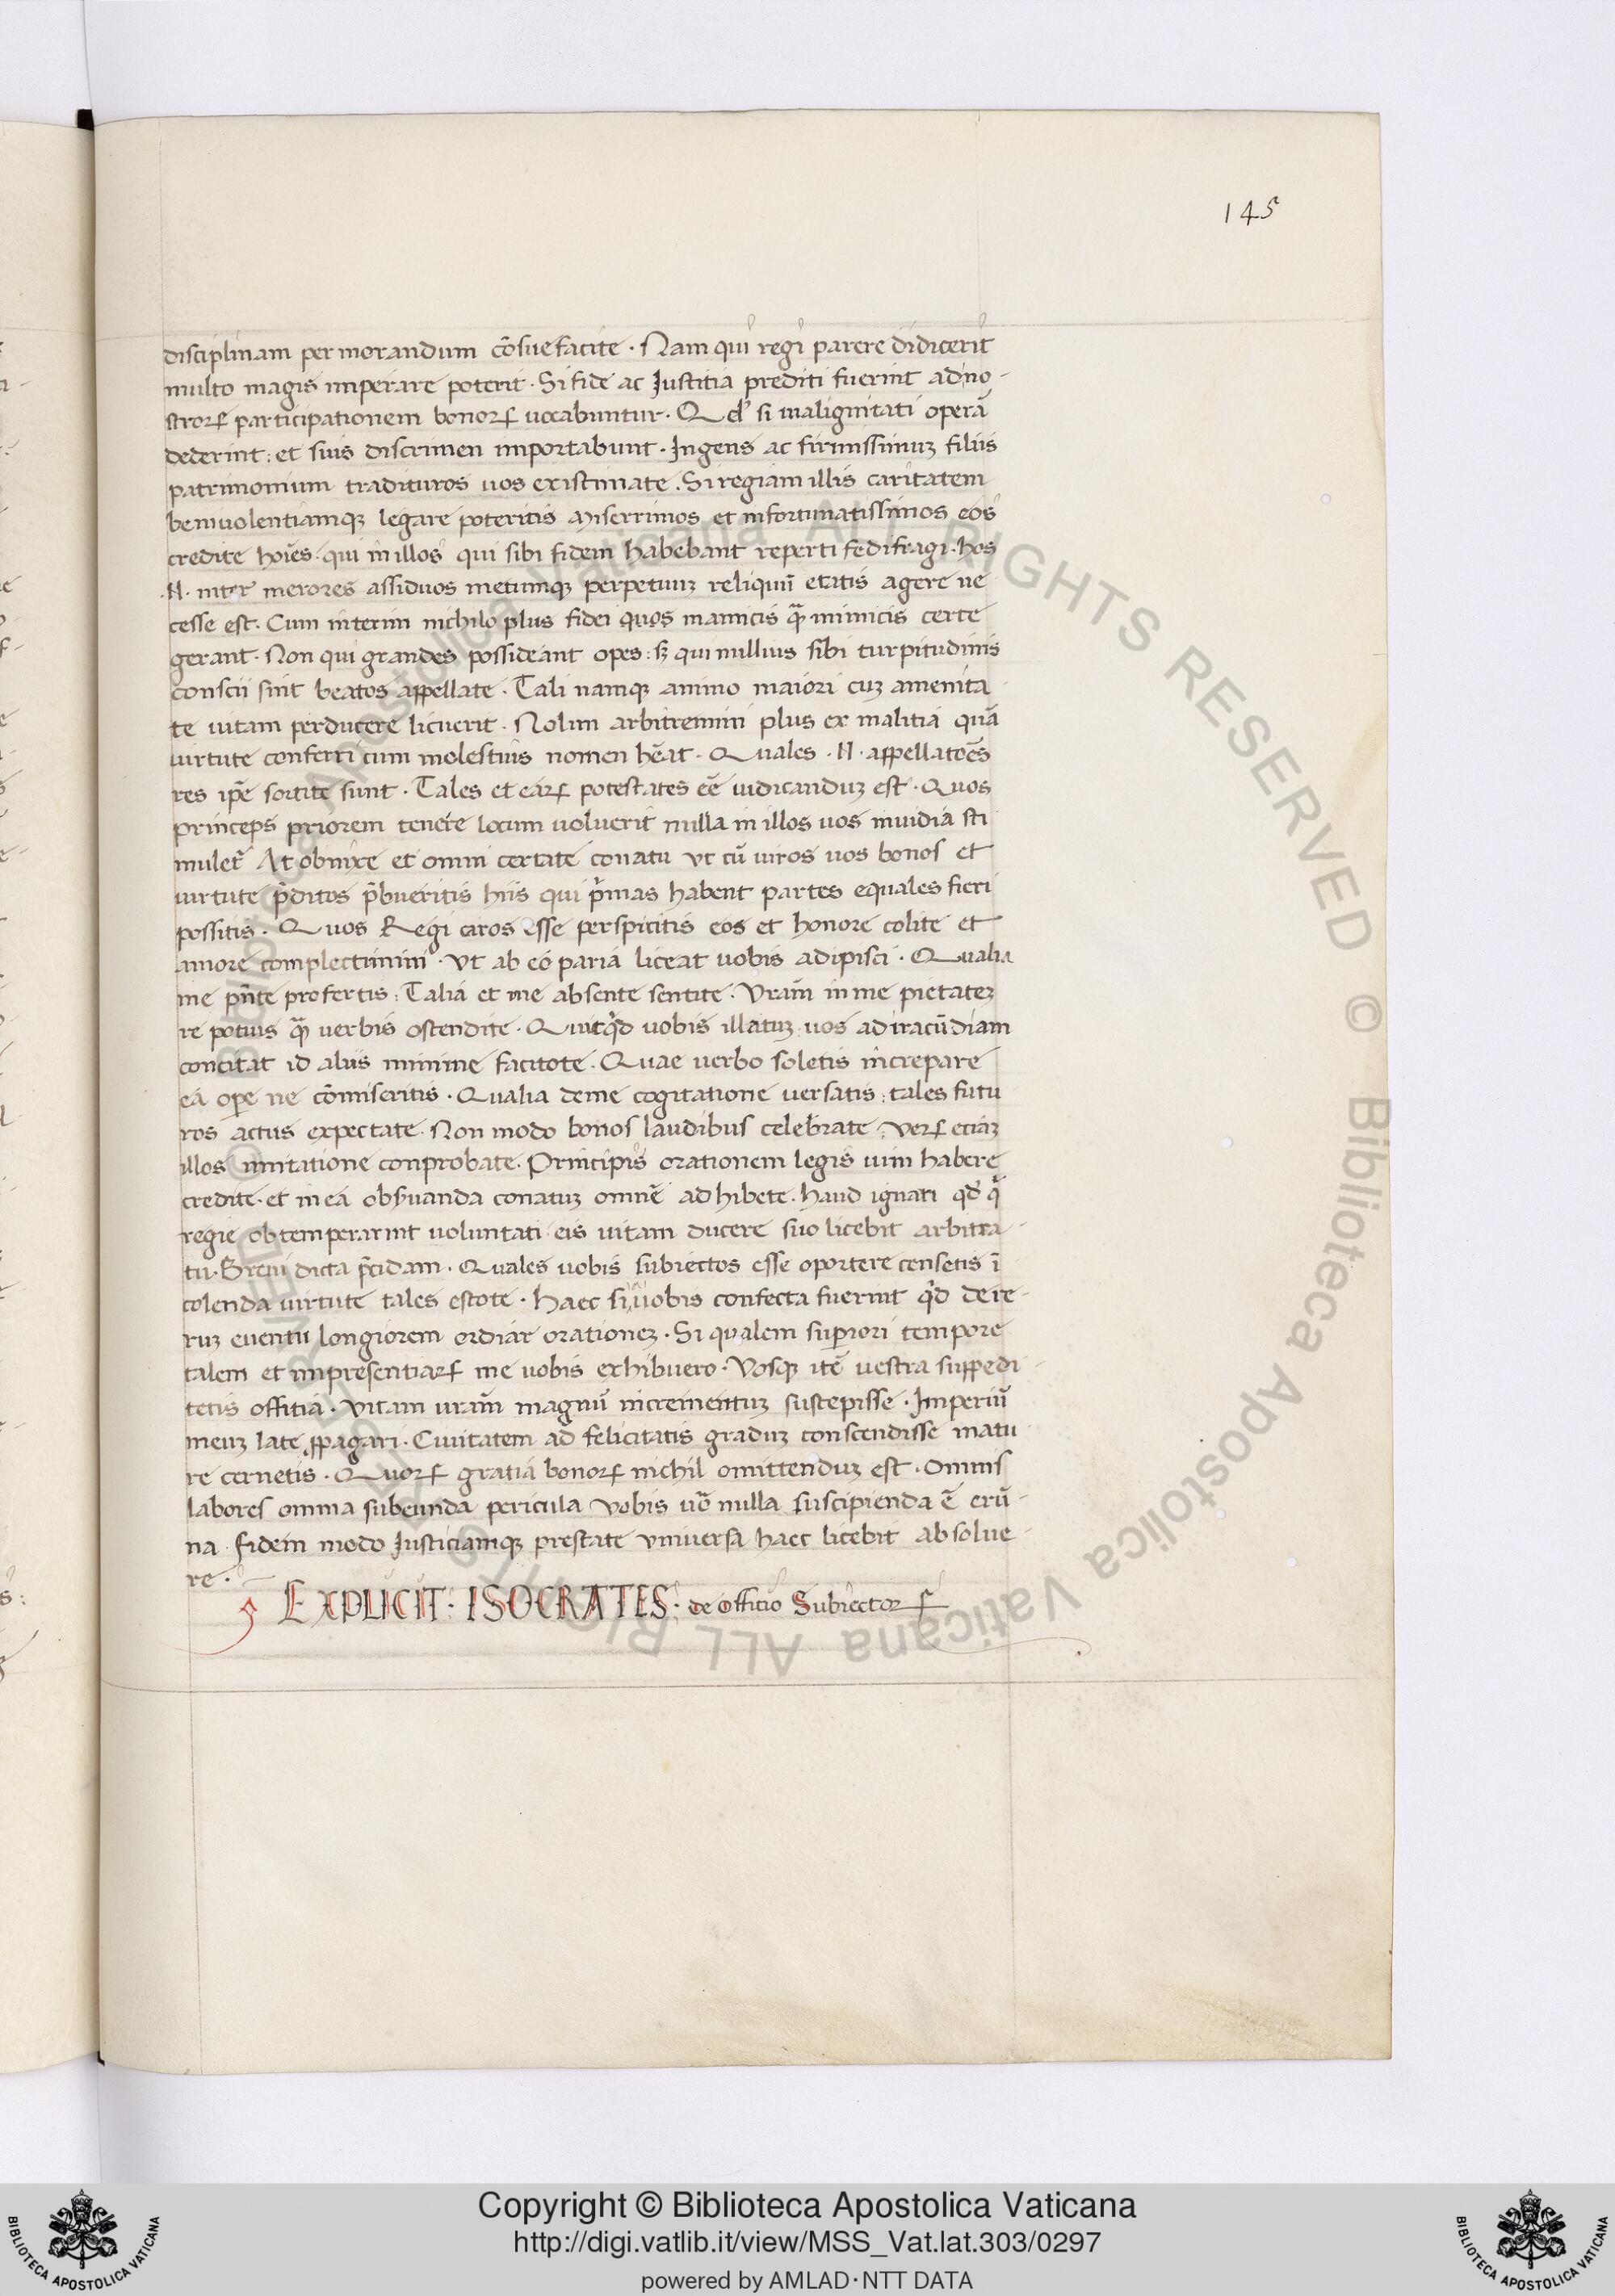 145
disciplinam per morandum cōsuefacite · Nam qui regi parere didicerit
multo magis imperare poterit · Si fide ac Iustitia prediti fuerint ad no-
stroꝝ participationem bonoꝝ uocabuntur · Qd' si malignitati operā
dederint : et suis discrimen importabunt · Ingens ac firmissimuz filiis
patrimonium tradituros uos existimate · Si regiam illis caritatem
beniuolentiamqꝫ legare poteritis Miserrimos et infortunatissimos eos
credite hoīes · qui in illos qui sibi fidem habebant reperti fedifragi · hos
·N· inter merores assiduos metumqꝫ perpetuuz reliquū etatis agere ne
cesse est · Cum interim nichilo plus fidei quos in amicis qꝫ̄ inimicis certe
gerant · Non qui grandes possideant opes : sꝫ qui nullius sibi turpitudinis
conscii sint beatos appellate · Tali namqꝫ animo maiori cuz amenita
te uitam perducere licuerit · Nolim arbitremini plus ex malitia quā
uirtute conferri cum molestius nomen hēat · Quales ·N· appellatoēs
res ipē sortite sunt · Tales et eaꝝ potestates eē iudicanduz est · Quos
princeps priorem tenere locum uoluerit nulla in illos uos inuidia sti
mulet̄ At obnixe et omni certate conatu vt cū uiros uos bonos et
uirtute p̄ditos p̄bueritis hiis qui p̄mas habent partes equales fieri
possitis · Quos Regi caros esse perspicitis eos et honore colite et
amore complectimini · Vt ab eo paria liceat uobis adipisci · Qualia
me pn̄te profertis : Talia et me absente sentite · Vrām in me pietateꝫ
re potius qꝫ̄ verbis ostendite · Quicqd̄ uobis illatuz uos ad iracūdiam
concitat id aliis minime facitote · Quae verbo soletis increpare
ea ope ne cōmiseritis · Qualia de me cogitatione versatis : tales futu
ros actus expectate · Non modo bonos laudibus celebrate · Veꝝ etiaꝫ
illos imitatione conprobate · Principis orationem legis uim habere
credite · et in ea obẜuanda conatuz omnē adhibete · haud ignari qd' q̄
regie obtemperarint voluntati eis uitam ducere suo licebit arbitra-
tu · Breui dicta p̄cidam · Quales uobis subiectos esse oportere censetis ī
colenda uirtute tales estote · Haec si uobis confecta fuerint qd̄ de re-
ruz euentu longiorem ordiar orationeꝫ · Si qualem superiori tempore
talem et impresentiaꝝ me uobis exhibuero · Vosqꝫ itē vestra suppedi-
tetis offitia · Vitam urām magnū incrementuz suscepisse · Imperiū
meuz late ꝓpagari · Ciuitatem ad felicitatis graduz conscendisse matu
re cernetis · Quoꝝ gratia bonoꝝ nichil omittenduz est · Omnis
labores omnia subeunda pericula Vobis uō nulla suscipienda ē erū-
na fidem modo Iusticiamqꝫ prestate vniuersa haec licebit absolue-
re ·
EXPLICIT · ISOCRATES · de offitio Subiectoꝝ
Copyright © Biblioteca Apostolica Vaticana
http://digi.vatlib.it/view/MSS_Vat.lat.303/0297
powered by AMLAD·NTT DATA
BIBLIOTECA APOSTOLICA VATICANA
BIBLIOTECA APOSTOLICA VATICANA
© Biblioteca Apostolica Vaticana ALL RIGHTS RESERVED
© Biblioteca Apostolica Vaticana ALL RIGHTS RESERVED